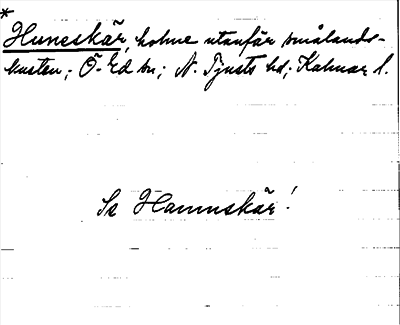 *
Huneskär, holme utanför smålands-
kusten; Ö. Ed sn; N. Tjusts hd; Kalmar l.
Se Hamnskär!